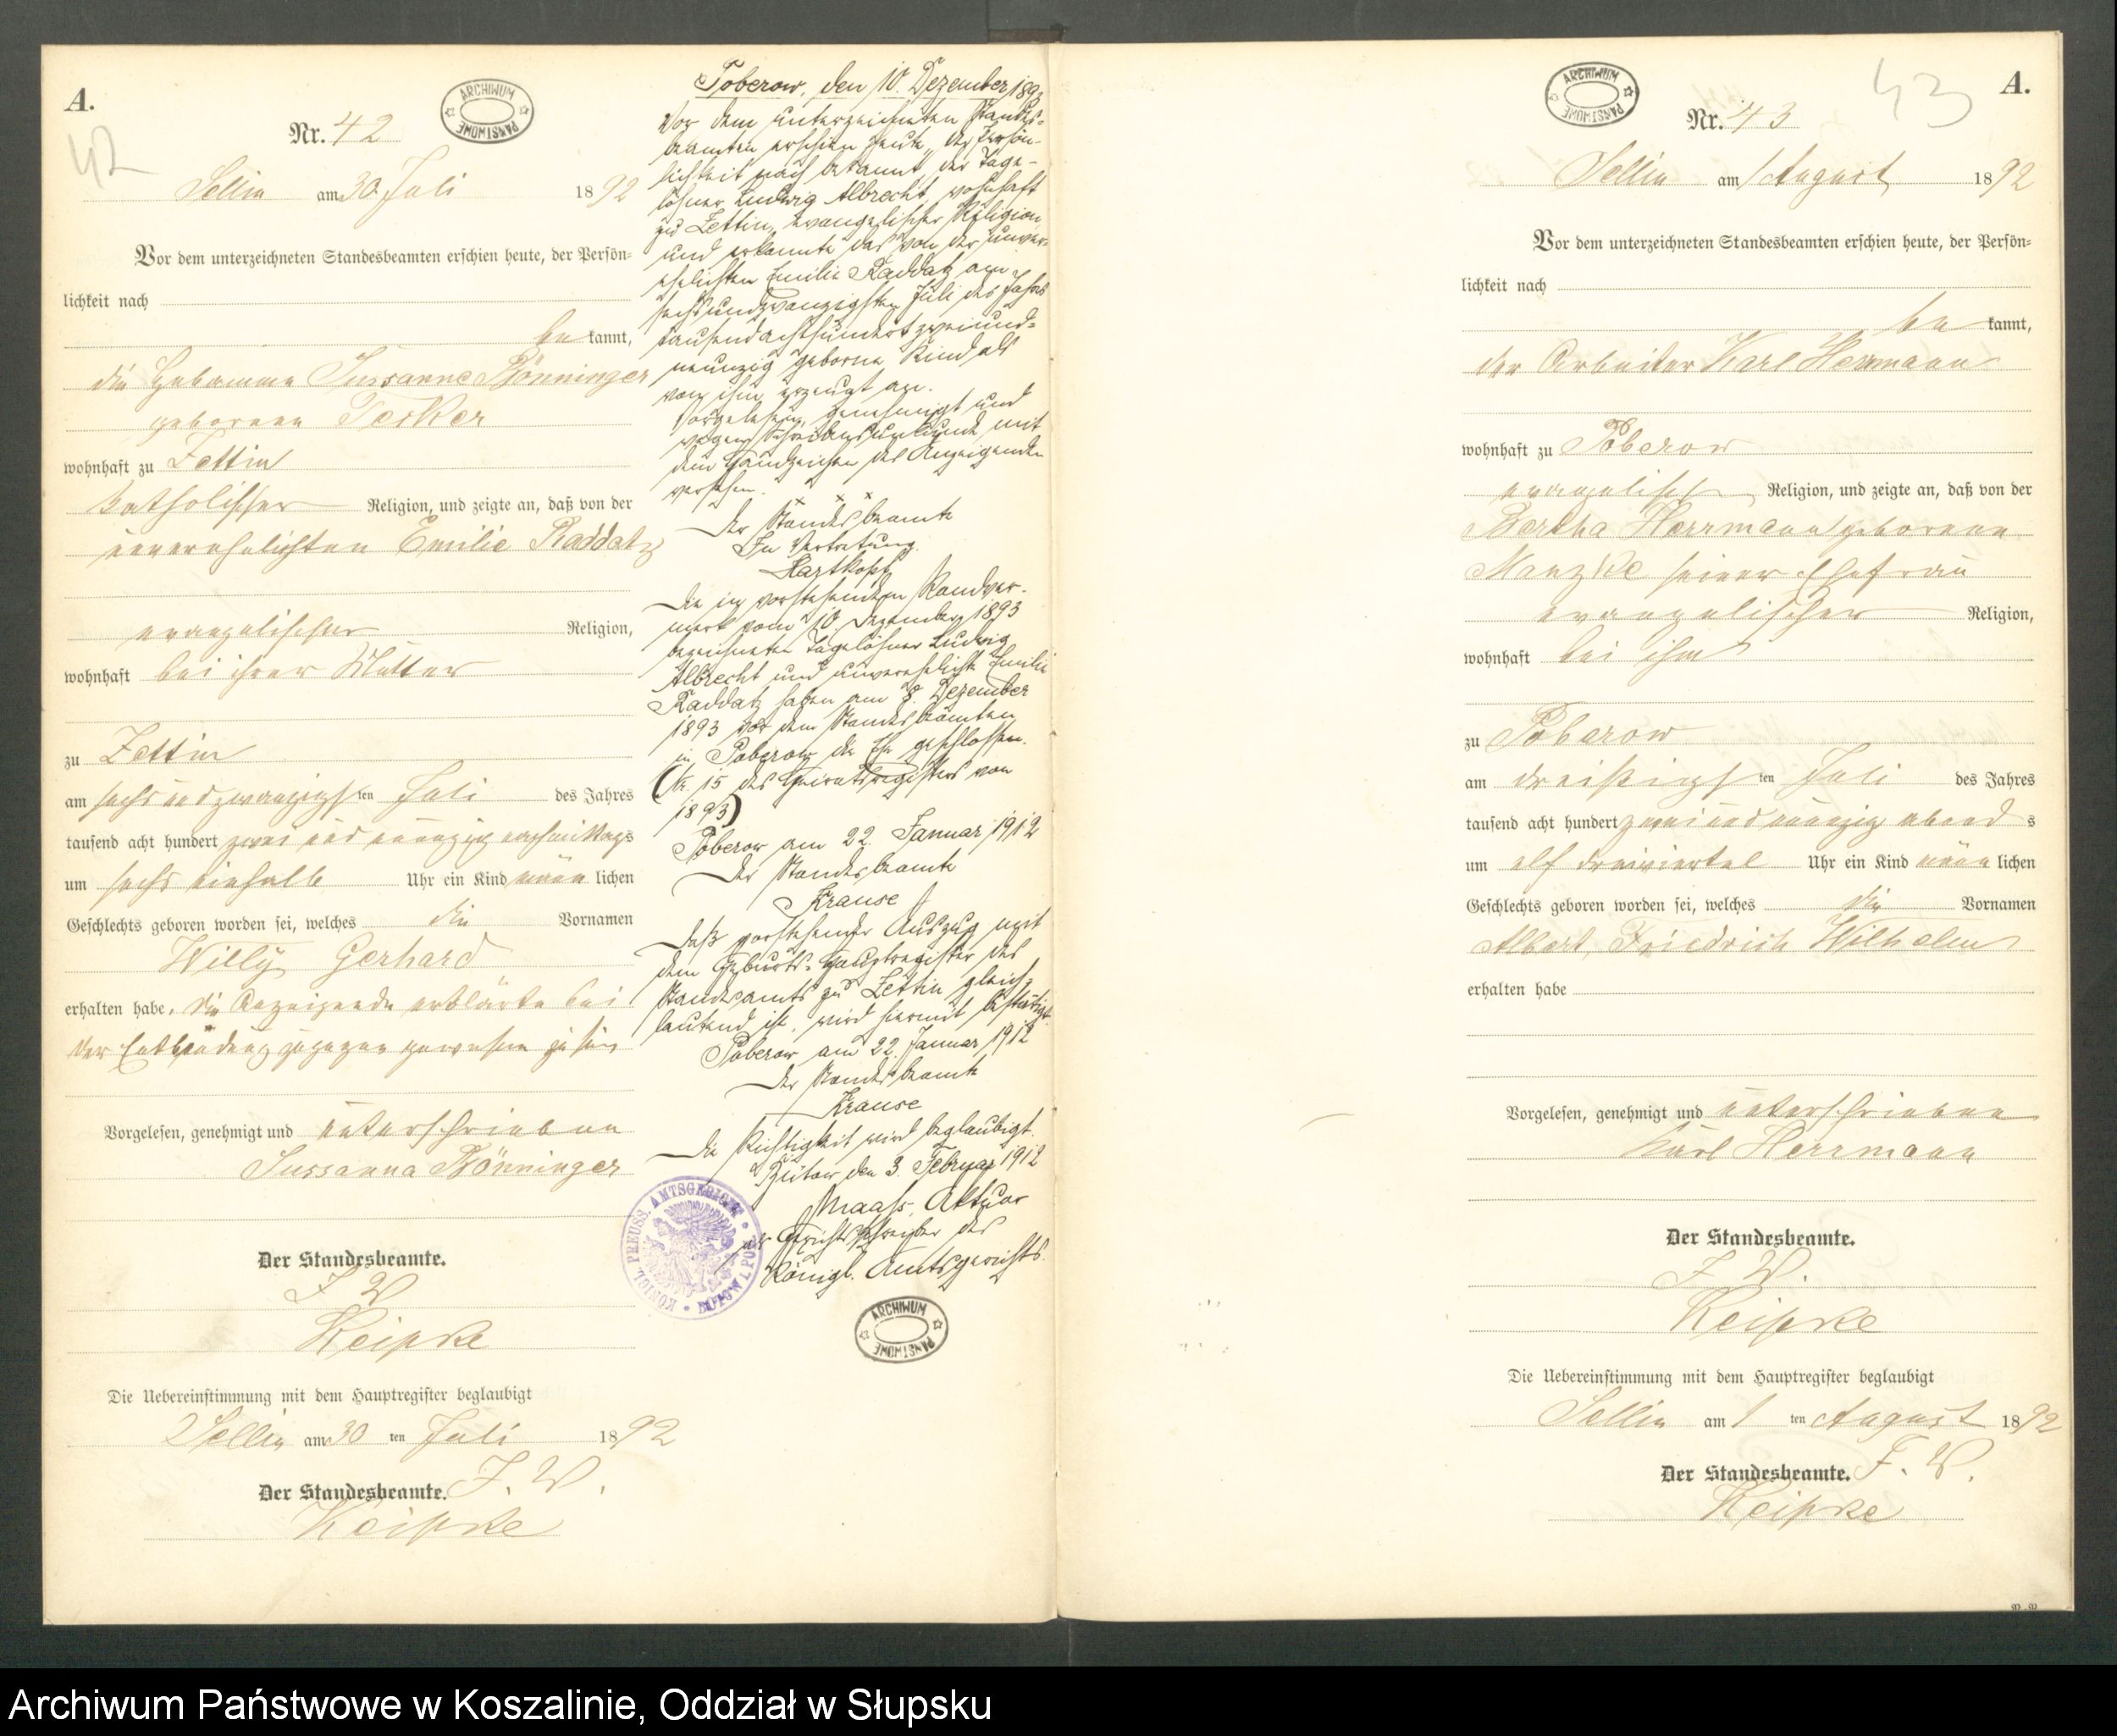 A.
42
ARCHIWUM PAŃSTWOWE
Nr. 42
Sellin am 30 Juli 1892
Vor dem unterzeichneten Standesbeamten erschien heute, der Persön-
lichkeit nach
be kannt,
die Hebamme Sussanne Bönninger
geborene
wohnhaft zu Zettin
katholischer Religion, und zeigte an, daß von der
unverehelichten Emilie Raddatz
evangelischer Religion,
wohnhaft bei ihrer Mutter
zu Zettin
am sechs und zwanzigsten Juli des Jahres
tausend acht hundert zwei und neunzig nachmittags
um sechs einhalb Uhr ein Kind männ lichen
Geschlechts geboren worden sei, welches die Vornamen
Willy Gerhard
erhalten habe. Die Anzeigende erklärte bei
der Entbindung zugegen gewesen zu sein
Vorgelesen, genehmigt und unterschrieben
Sussanna Bönninger
Der Standesbeamte.
I. V.
Keipke
Die Uebereinstimmung mit dem Hauptregister beglaubigt
Sellin am 30 ten Juli 1892
Der Standesbeamte. I. V.
Keipke
Poberow, den 10. Dezember 1893
Vor dem unterzeichneten Standes-
beamten erschien heute, der Persön-
lichkeit nach bekannt, der Tage-
löhner Ludwig Albrecht, wohnhaft
zu Zettin, evangelischer Religion,
und erkannte das von der unver-
ehelichten Emilie Raddatz am
sechsundzwanzigsten Juli des Jahres
tausendachthundertzweiund-
neunzig geborene Kind als
von ihm erzeugt an.
Vorgelesen, genehmigt und
wegen Schreibensunkunde mit
dem Handzeichen des Anzeigenden
versehen.
x x x
Der Standesbeamte
In Vertretung.
Hartkopf
Die in vorstehendem Randver-
merk vom 10. Dezember 1893
bezeichneten Tagelöhner Ludwig
Albrecht und unverehelichte Emilie
Raddatz haben am 8. Dezember
1893 vor dem Standesbeamten
in Poberow die Ehe geschlossen.
(Nr. 15 des Heiratsregisters von
1893)
Poberow am 22. Januar 1912
Der Standesbeamte
Krause
Daß vorstehender Auszug mit
dem Geburts-Hauptregister des
Standesamts zu Zettin gleich-
lautend ist, wird hiermit bestätigt.
Poberow am 22. Januar 1912
Der Standesbeamte
Krause
Die Richtigkeit wird beglaubigt.
Bütow den 3. Februar 1912
Maass, Aktuar
als Gerichtsschreiber des
Königl. Amtsgerichts.
KÖNIGL. PREUSS. AMTSGERICHT * BÜTOW I. POM. *
ARCHIWUM PAŃSTWOWE
ARCHIWUM PAŃSTWOWE
43
A.
Nr. 43
Sellin am 1 August 1892
Vor dem unterzeichneten Standesbeamten erschien heute, der Persön-
lichkeit nach
be kannt,
der Arbeiter Karl Herrmann
wohnhaft zu Poberow
evangelisch Religion, und zeigte an, daß von der
Bertha Herrmann geborene
Manzke seiner Ehefrau
evangelischer Religion,
wohnhaft bei ihm
zu Poberow
am dreißigsten Juli des Jahres
tausend acht hundert zwei und neunzig abend s
um elf dreiviertel Uhr ein Kind männ lichen
Geschlechts geboren worden sei, welches die Vornamen
Albert Friedrich Wilhelm
erhalten habe
Vorgelesen, genehmigt und unterschrieben
Karl Herrmann
Der Standesbeamte.
I. V.
Keipke
Die Uebereinstimmung mit dem Hauptregister beglaubigt
Sellin am 1 ten August 1892
Der Standesbeamte. I. V.
Keipke
Archiwum Państwowe w Koszalinie, Oddział w Słupsku